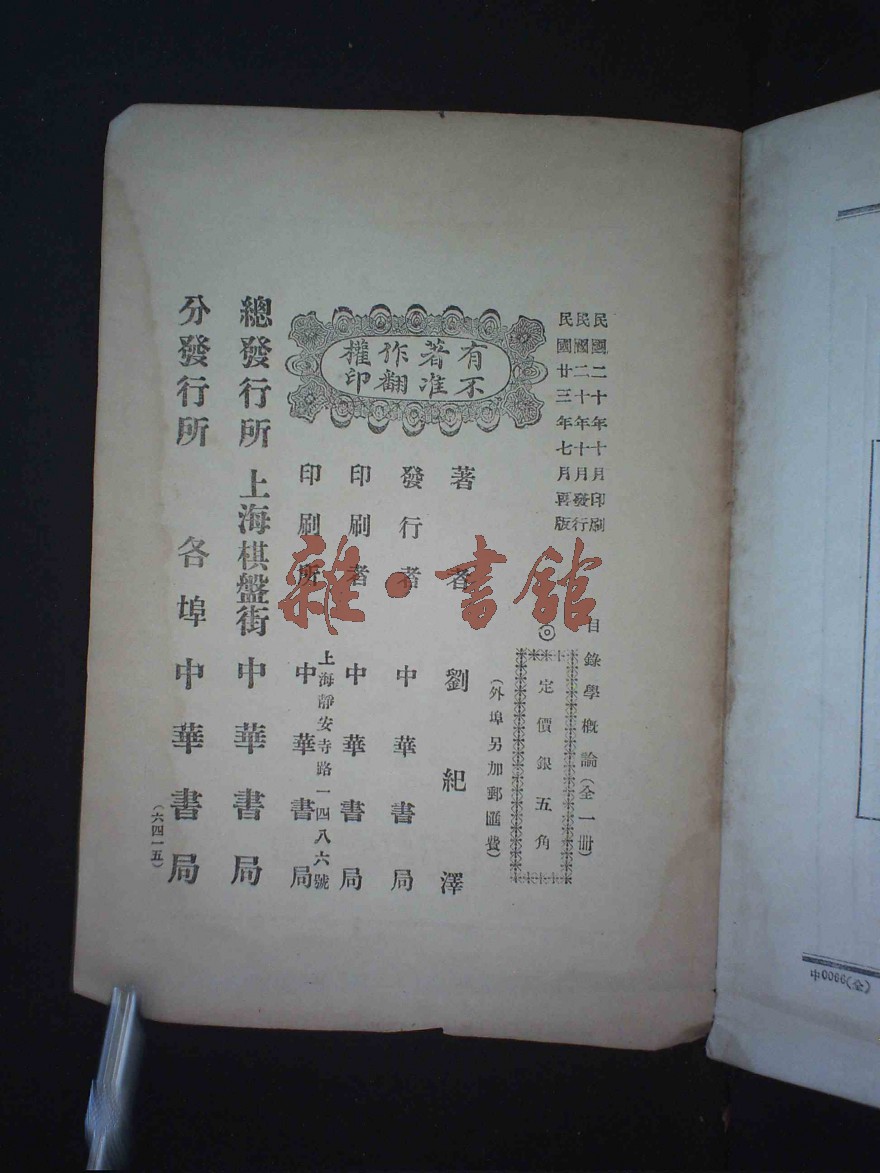 民國二十年十月印刷
民國二十年十月發行
民國廿三年七月再版
目錄學概論(全一冊)
◎定價銀五角
(外埠另加郵匯費)
有著作權
不准翻印
著者 劉紀澤
發行者 中華書局
印刷者 中華書局
上海靜安寺路一四八六號
印刷所 中華書局
總發行所 上海棋盤街 中華書局
分發行所 各埠 中華書局
(六四一五)
雜·書館